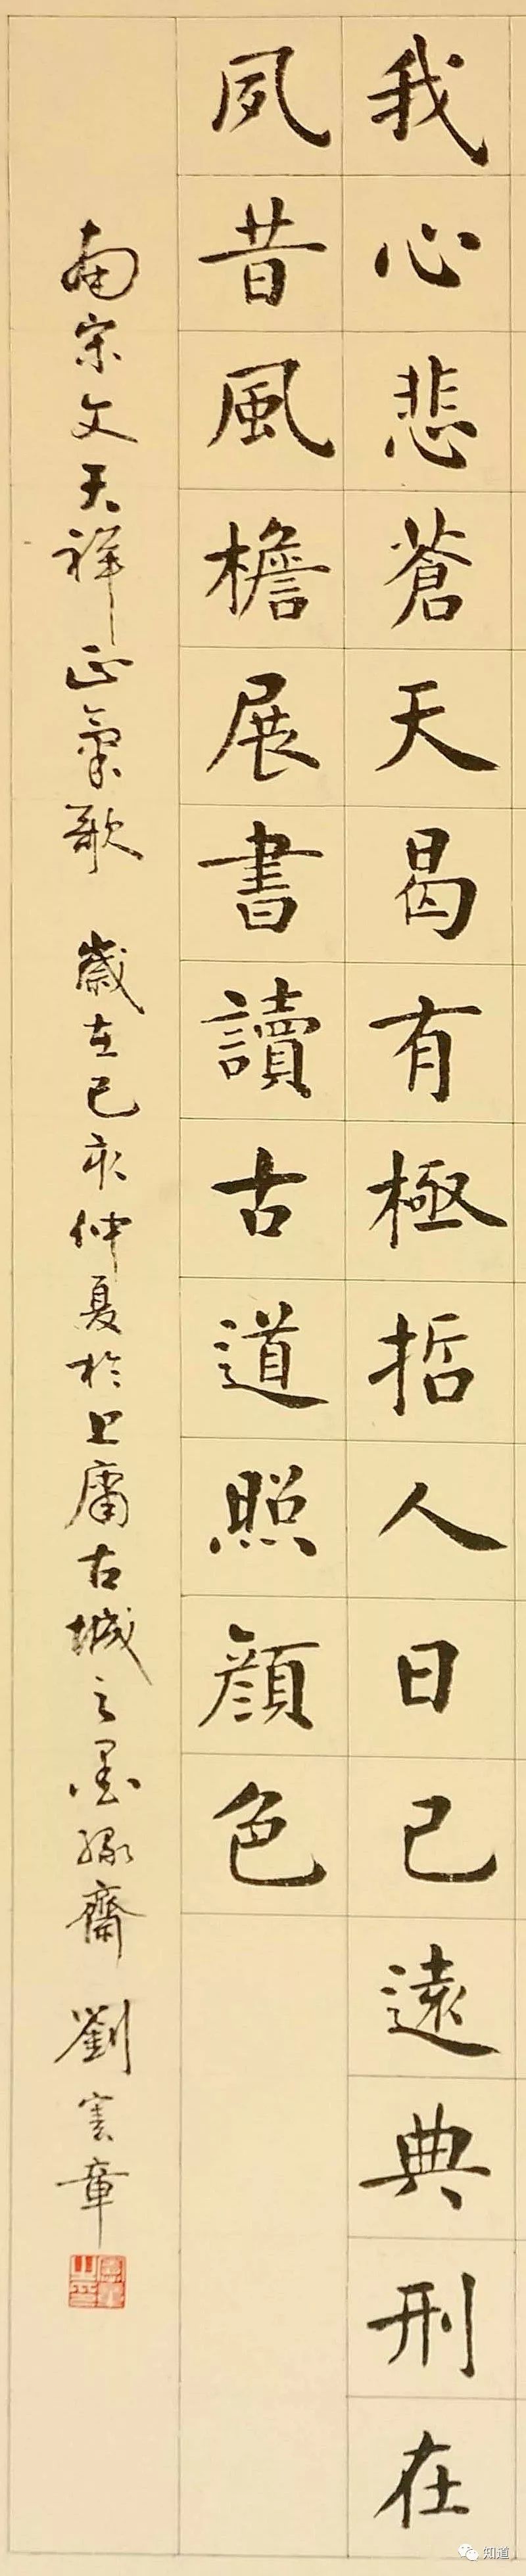 我心悲蒼天曷有極哲人日已遠典刑在
夙昔風檐展書讀古道照顏色
南宋文天祥正氣歌 歲在己亥仲夏於上庸古城之墨緣齋 劉憲章
知道